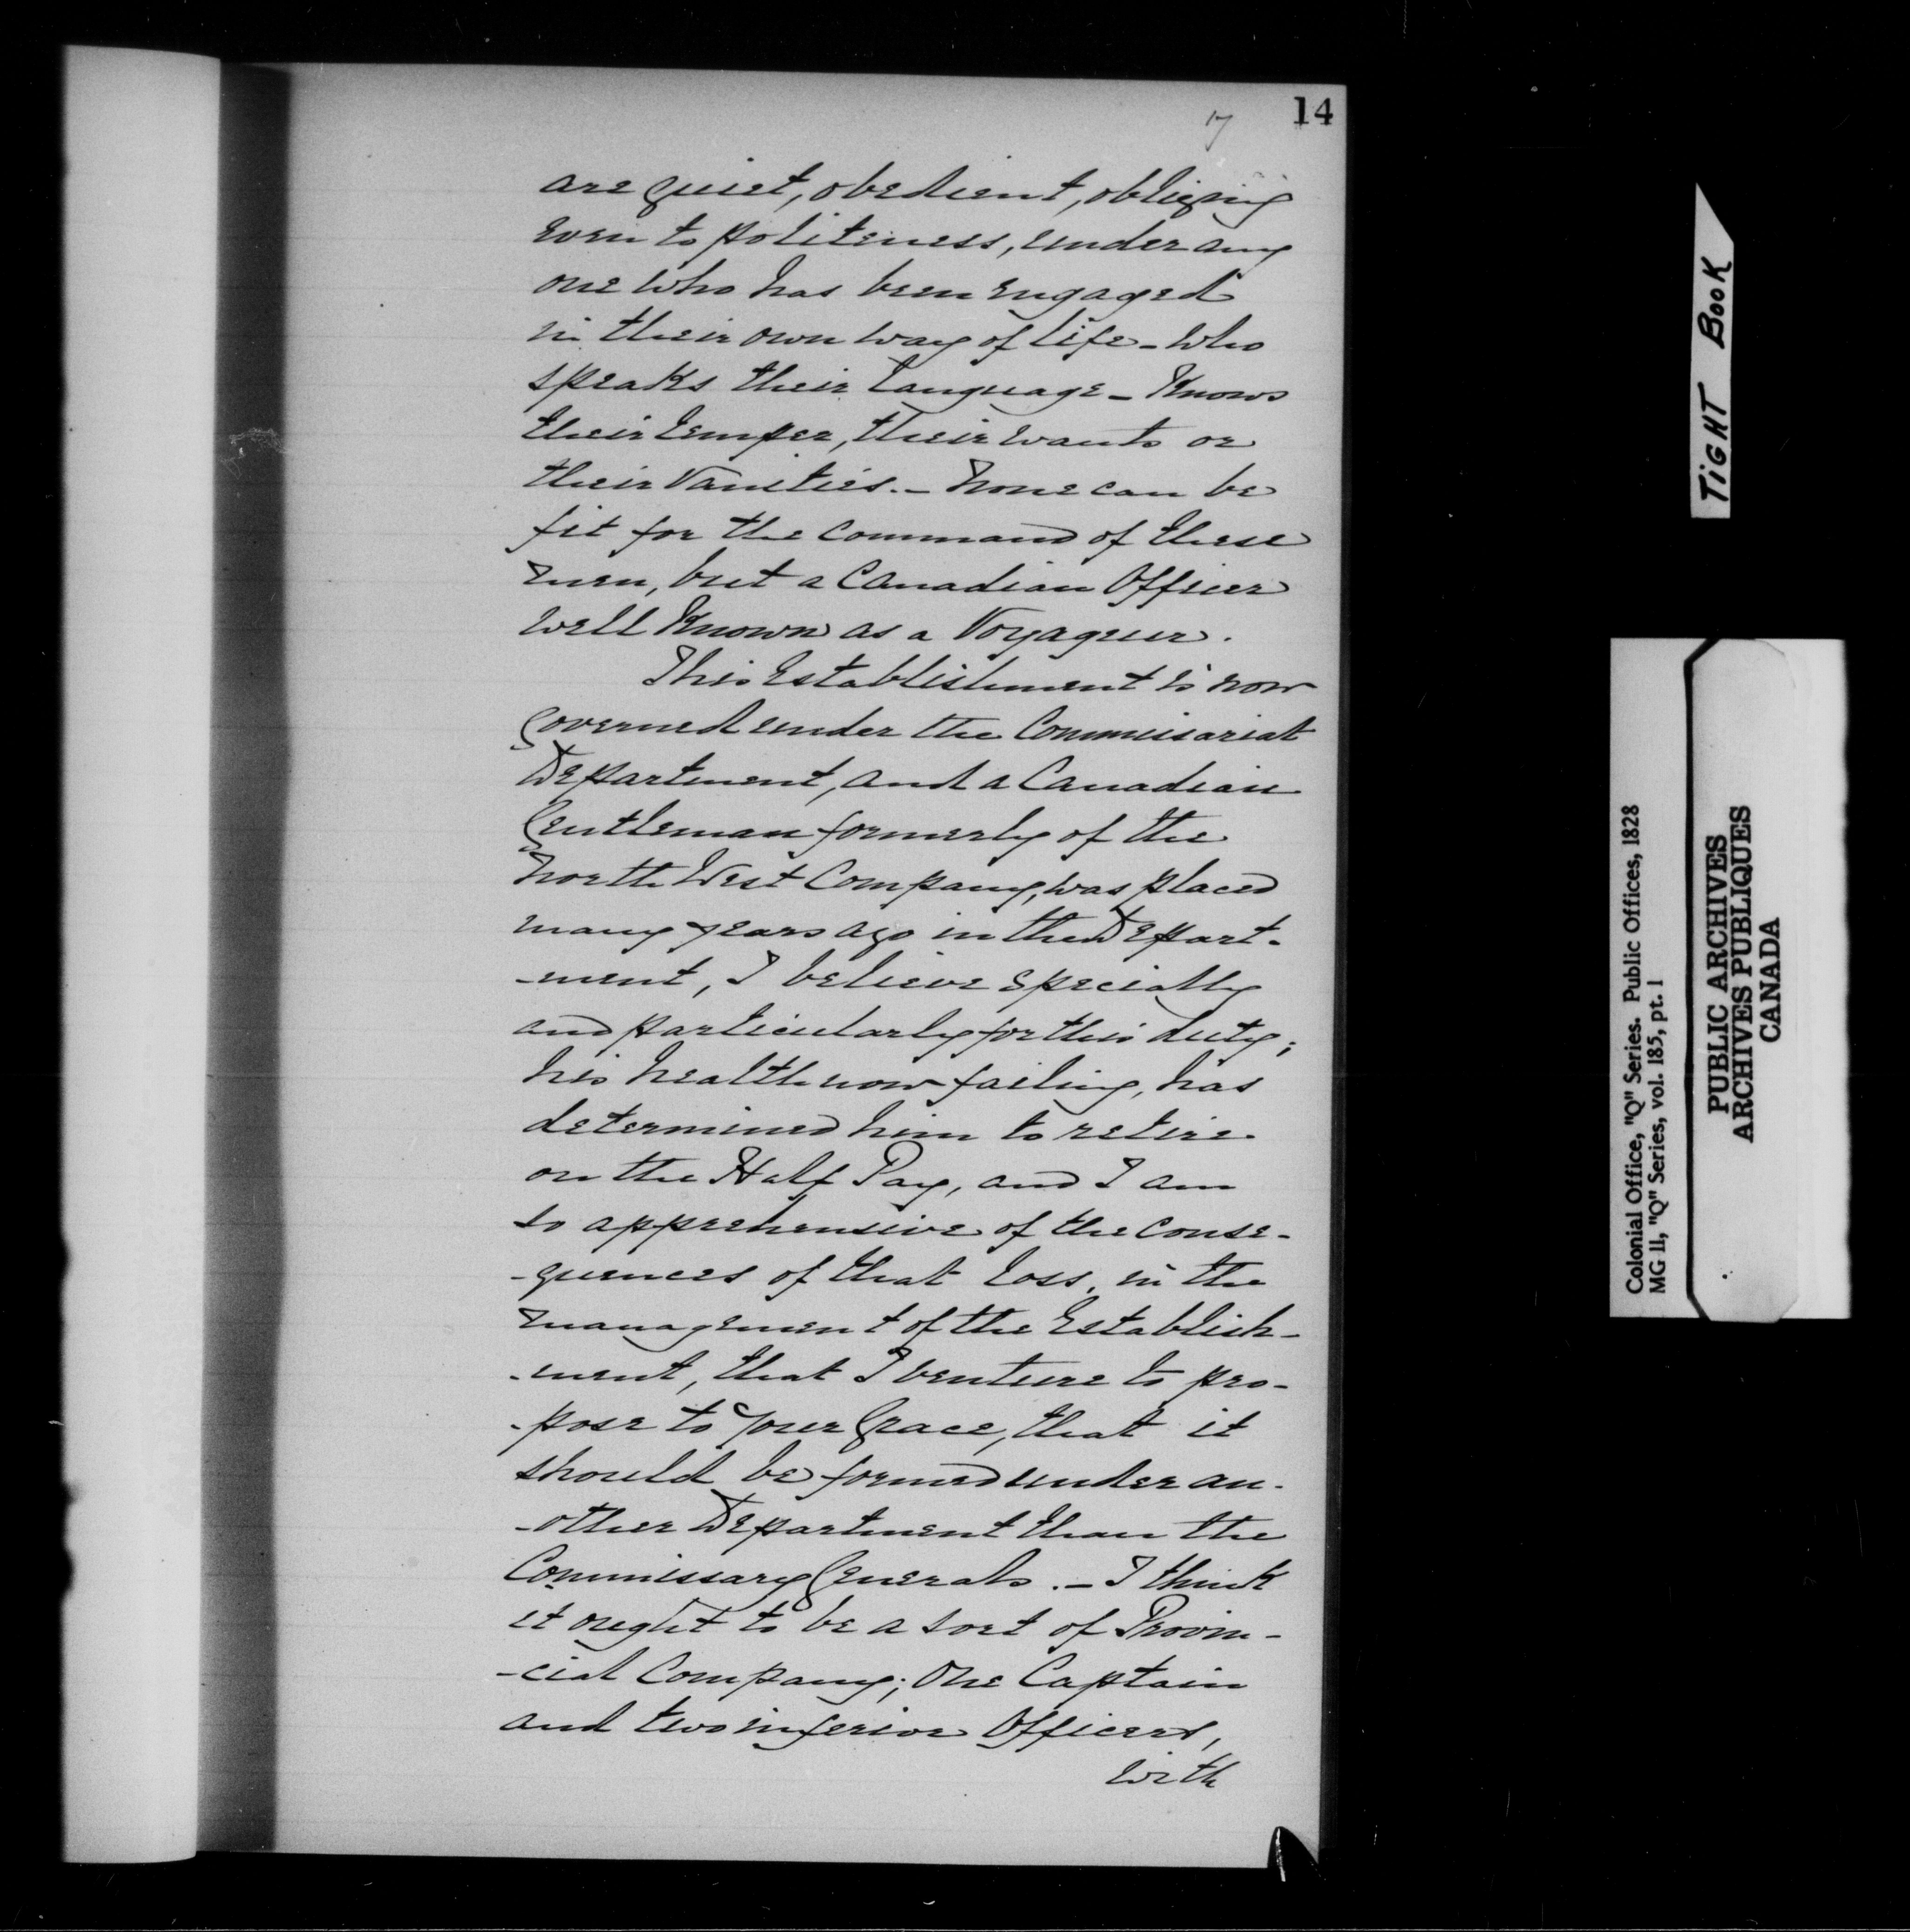 17 14
are quiet, obedient, obliging
even to politeness, under any
one who has been engaged
in their own way of life - who
speaks their language - Knows
their temper, their wants or
their vanities. - None can be
fit for the command of these
men, but a Canadian Officer
well Known as a Voyageur.
This Establishment is now
Governed under the Commissariat
Department, and a Canadian
Gentleman formerly of the
North West Company, was placed
many years ago in the Depart-
-ment, I believe specially
and particularly for this duty;
his health now failing, has
determined him to retire
on the Half Pay, and I am
so apprehensive of the conse-
-quences of that loss, in the
management of the Establish-
-ment, that I venture to pro-
-pose to Your Grace, that it
should be formed under an-
-other Department than the
Commissary Generals. - I think
it ought to be a sort of Provin-
-cial Company; One Captain
and two inferior Officers,
with
TIGHT BOOK
Colonial Office, "Q" Series. Public Offices, 1828
MG 11, "Q" Series, vol. 185, pt. 1
PUBLIC ARCHIVES
ARCHIVES PUBLIQUES
CANADA